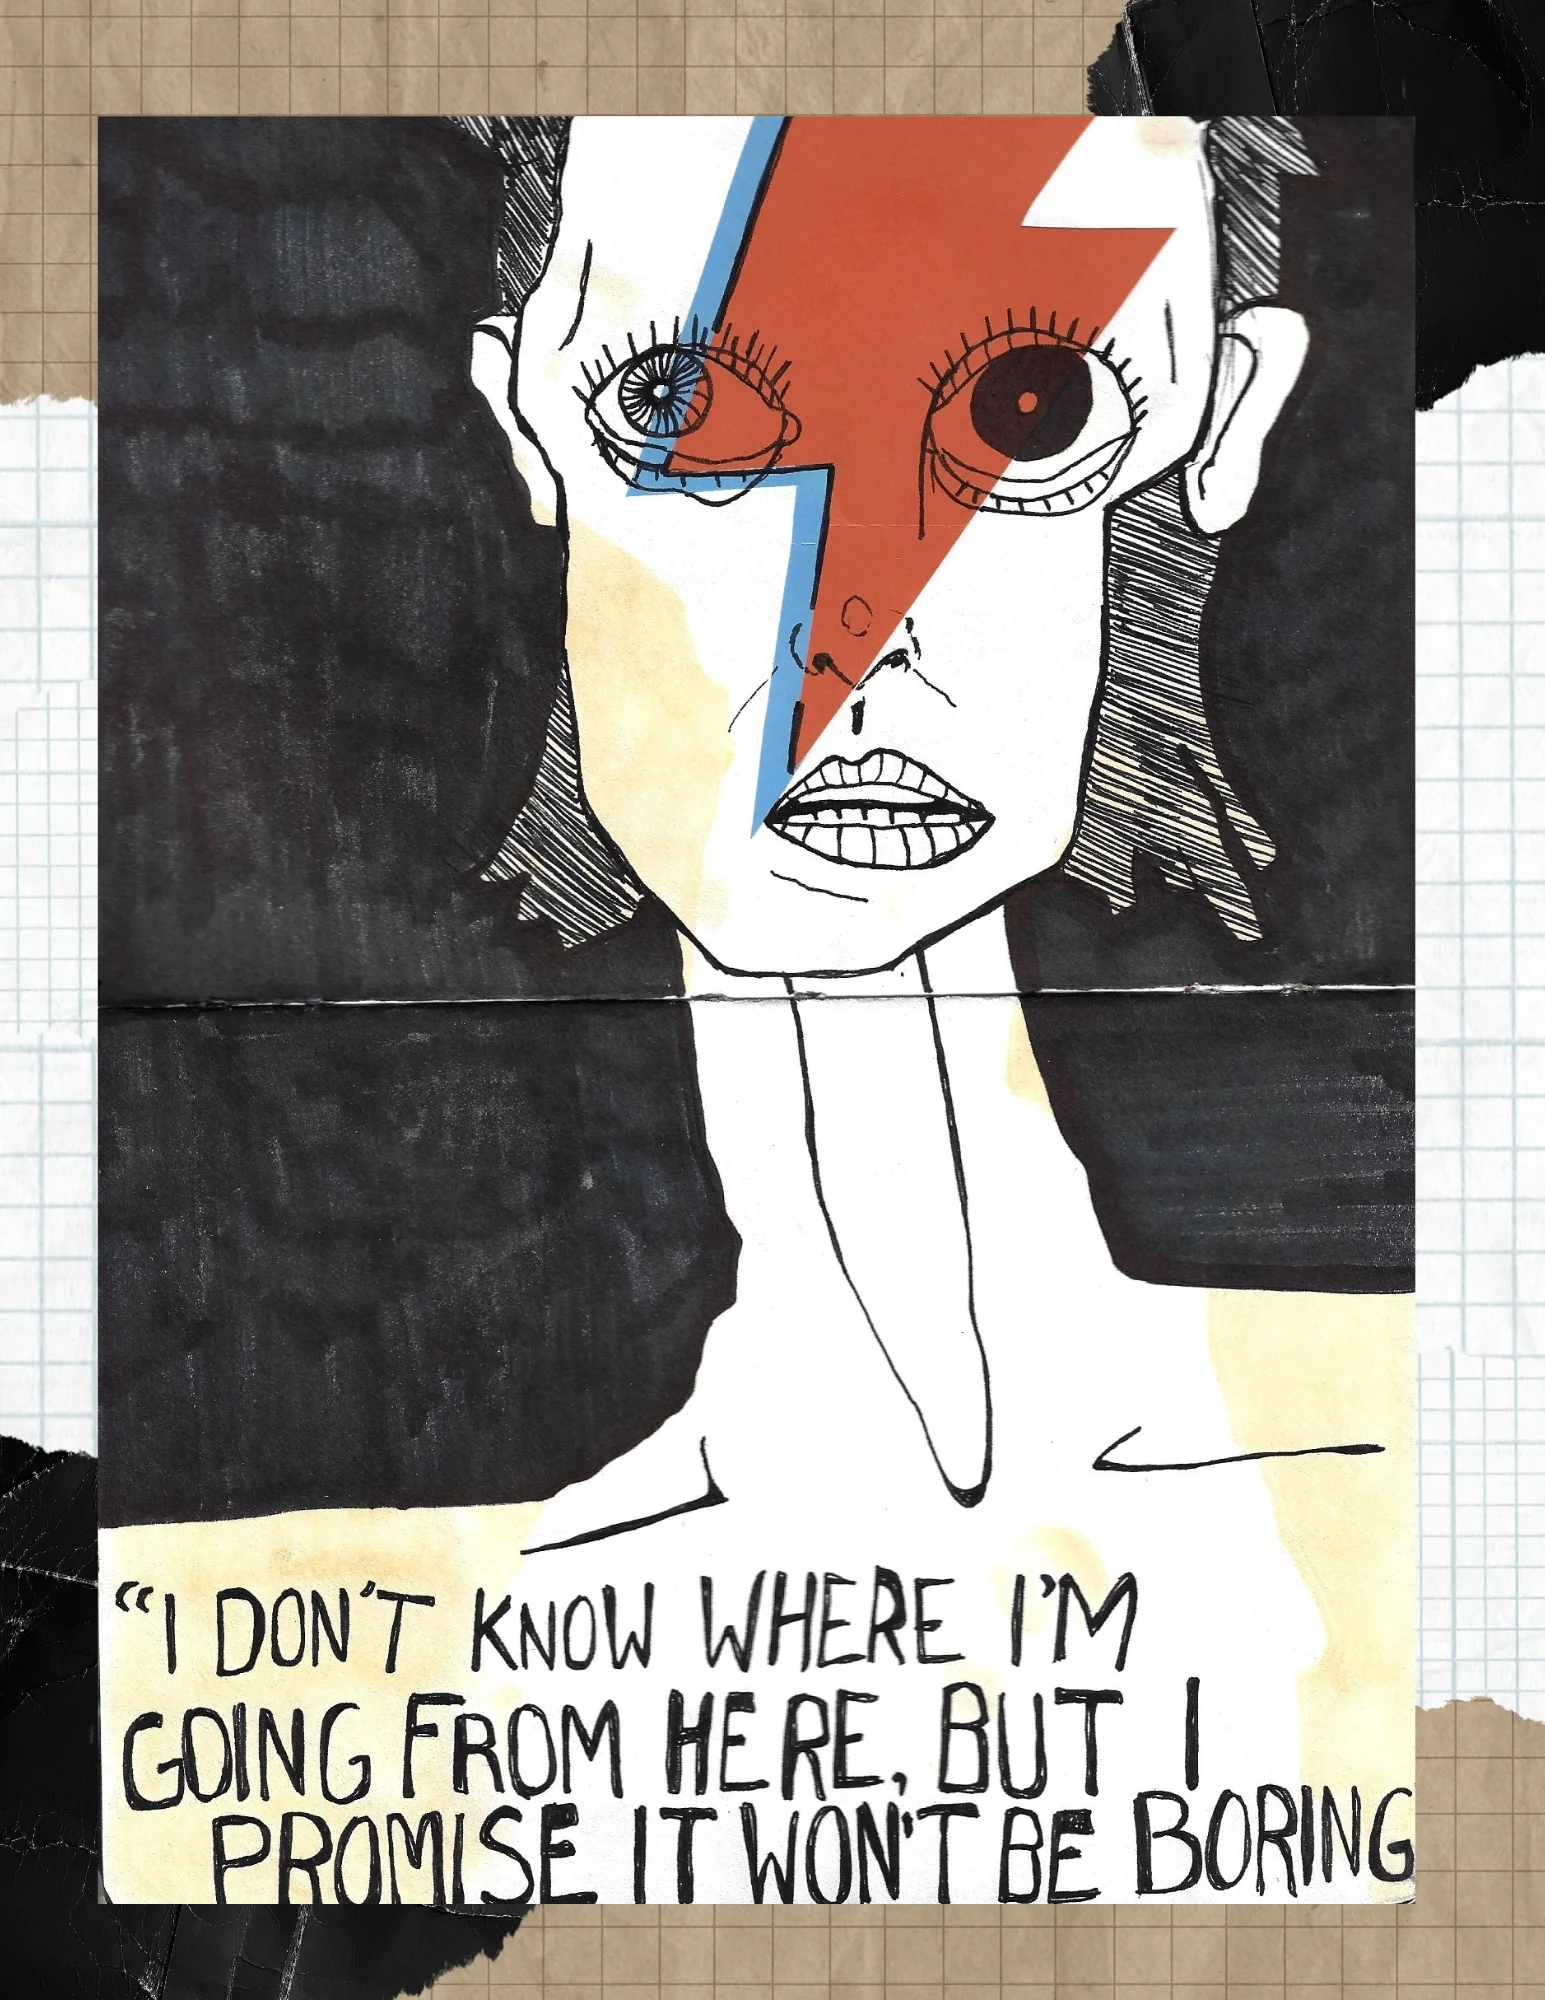 “I DON'T KNOW WHERE I'M
GOING FROM HERE, BUT I
PROMISE IT WON'T BE BORING